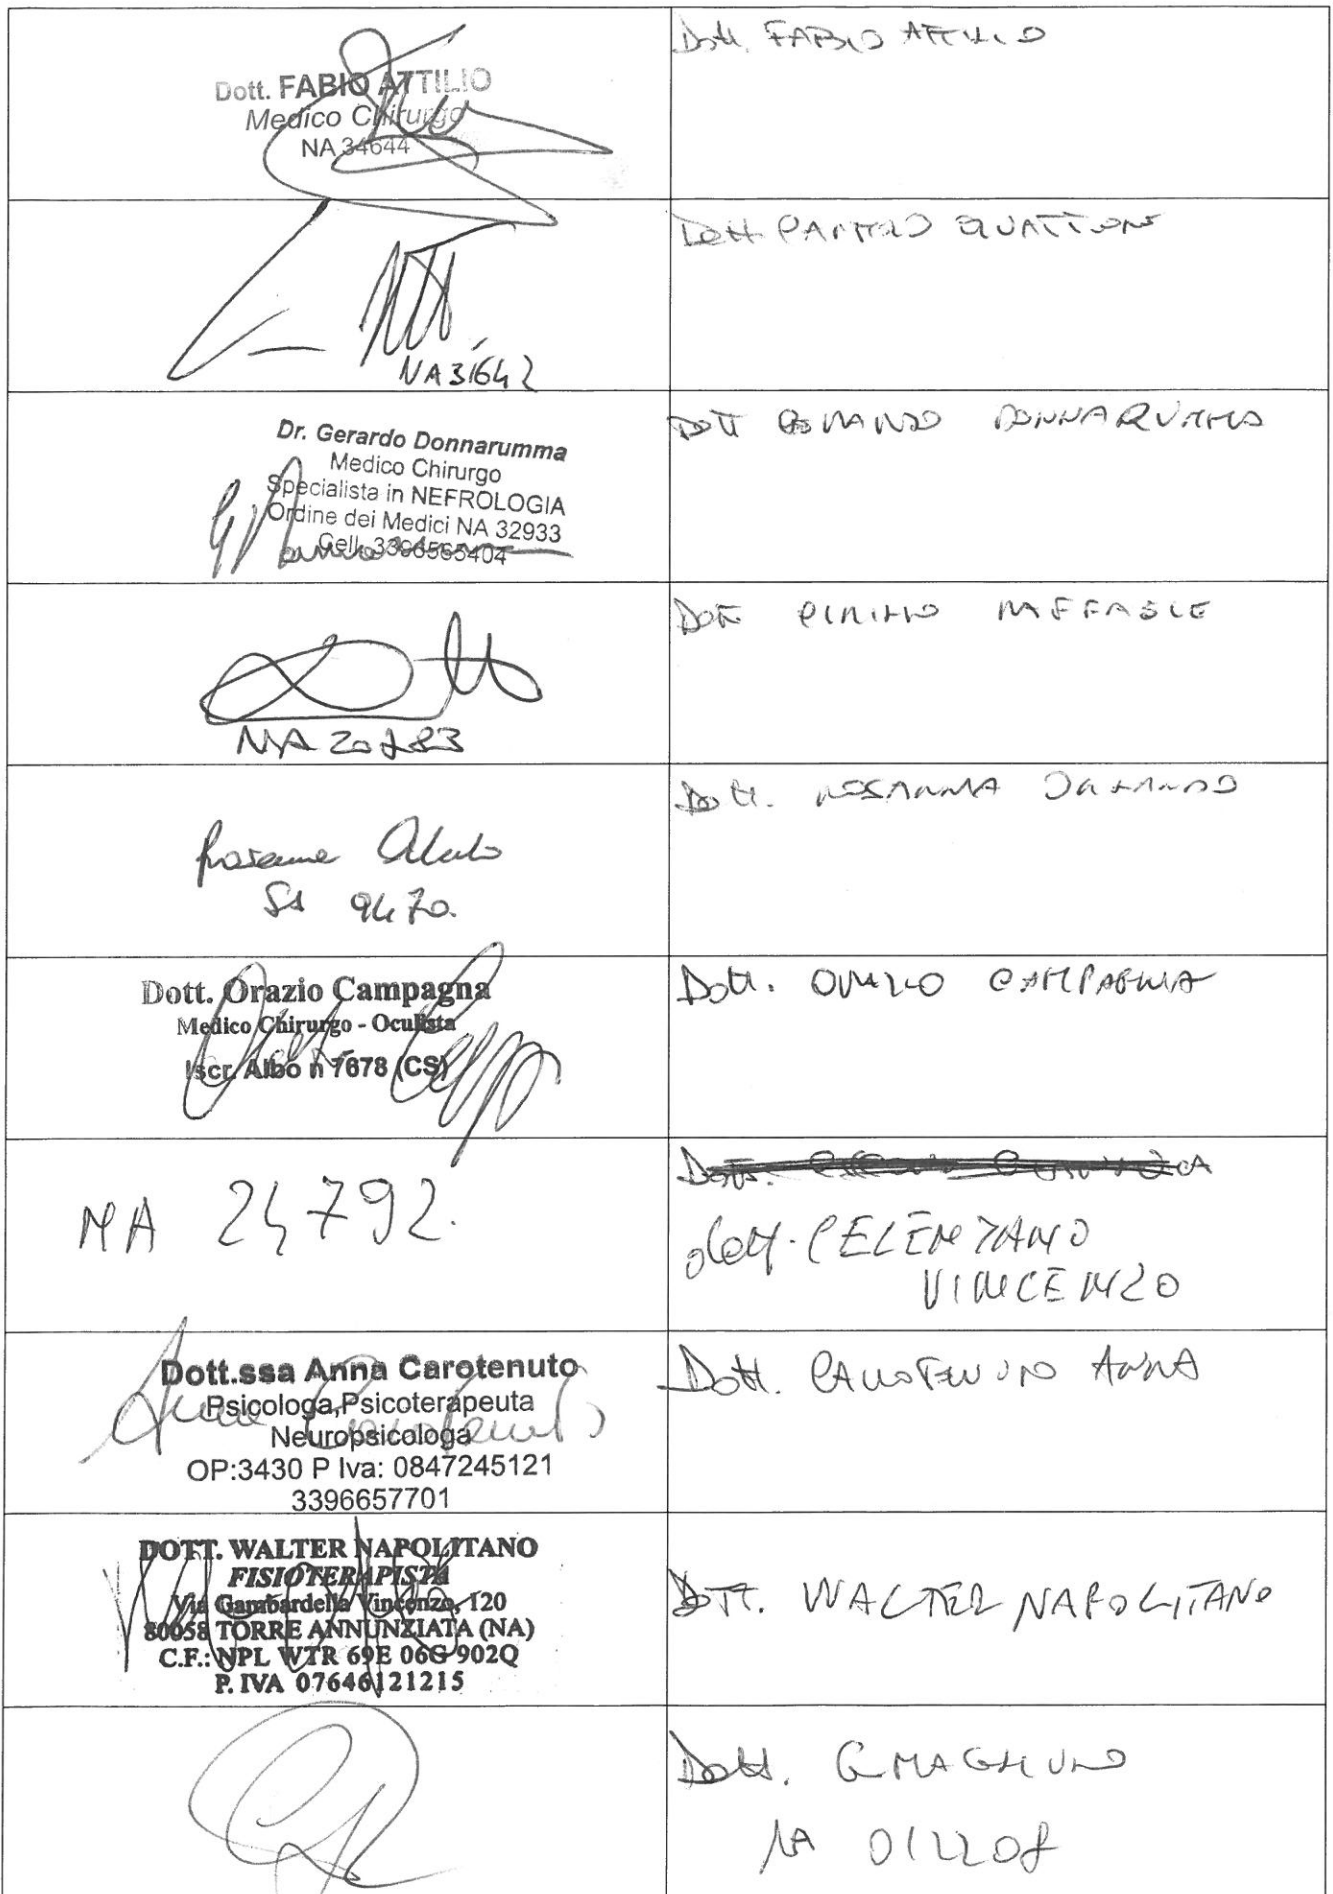 Dott. FABIO ATTILIO
Medico Chirurgo
NA 34644
Dott. FABIO ATTILIO
NA 31642
Dott
Dr. Gerardo Donnarumma
Medico Chirurgo
Specialista in NEFROLOGIA
Ordine dei Medici NA 32933
Cell. 3396565404
DOTT GERARDO DONNARUMMA
NA 20783
DOTT RAFFAELE
SA 9470.
Dott. ROSANNA
Dott. Orazio Campagna
Medico Chirurgo - Oculista
Iscr. Albo n 7678 (CS)
Dott. ORAZIO CAMPAGNA
NA 24792.
dott. CELENTANO
VINCENZO
Dott.ssa Anna Carotenuto
Psicologa,Psicoterapeuta
Neuropsicologa
OP:3430 P Iva: 0847245121
3396657701
Dott. CAROTENUTO ANNA
DOTT. WALTER NAPOLITANO
FISIOTERAPISTA
Via Gambardella Vincenzo, 120
80058 TORRE ANNUNZIATA (NA)
C.F.: NPL WTR 69E 06G 902Q
P. IVA 07646121215
DOTT. WALTER NAPOLITANO
Dott.
NA